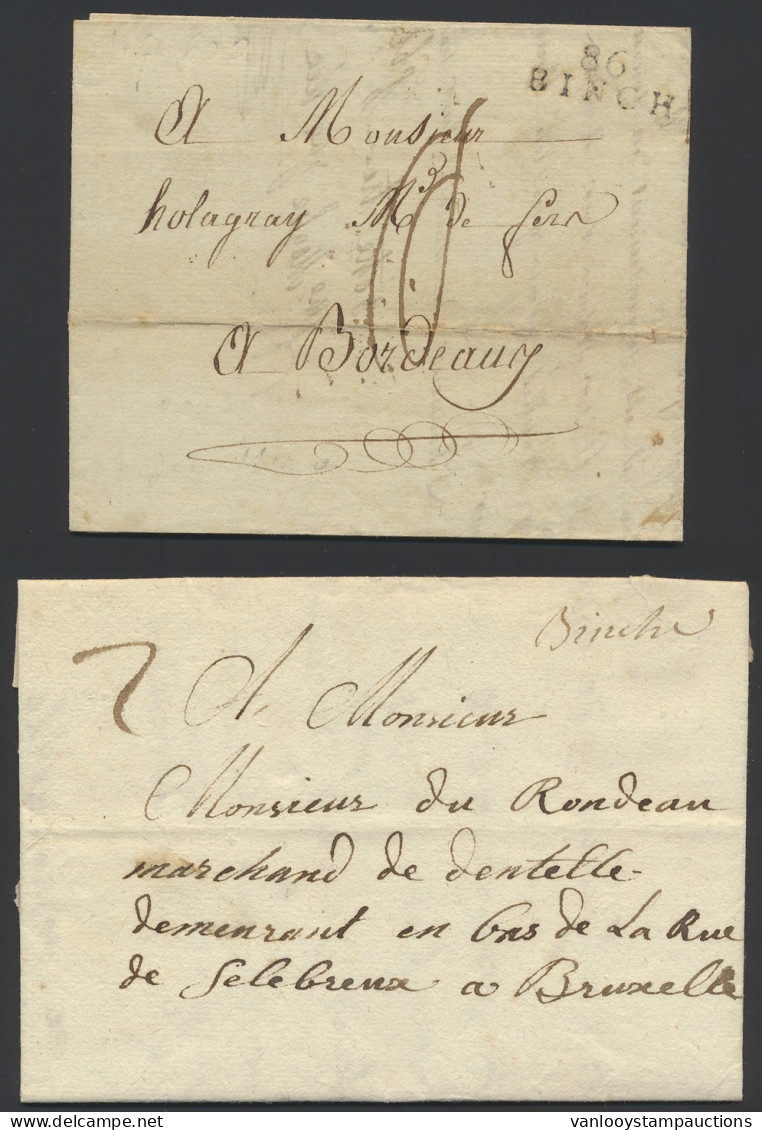 86
BINCH
A Monsieur
holagray Md de fers
16
A Bordeaux
Binche
2
A Monsieur
Monsieur du Rondeau
marchand de dentelle
demeurant en bas de La Rue
de Selebreux a Bruxelle
delcampe.net
vanlooystampauctions